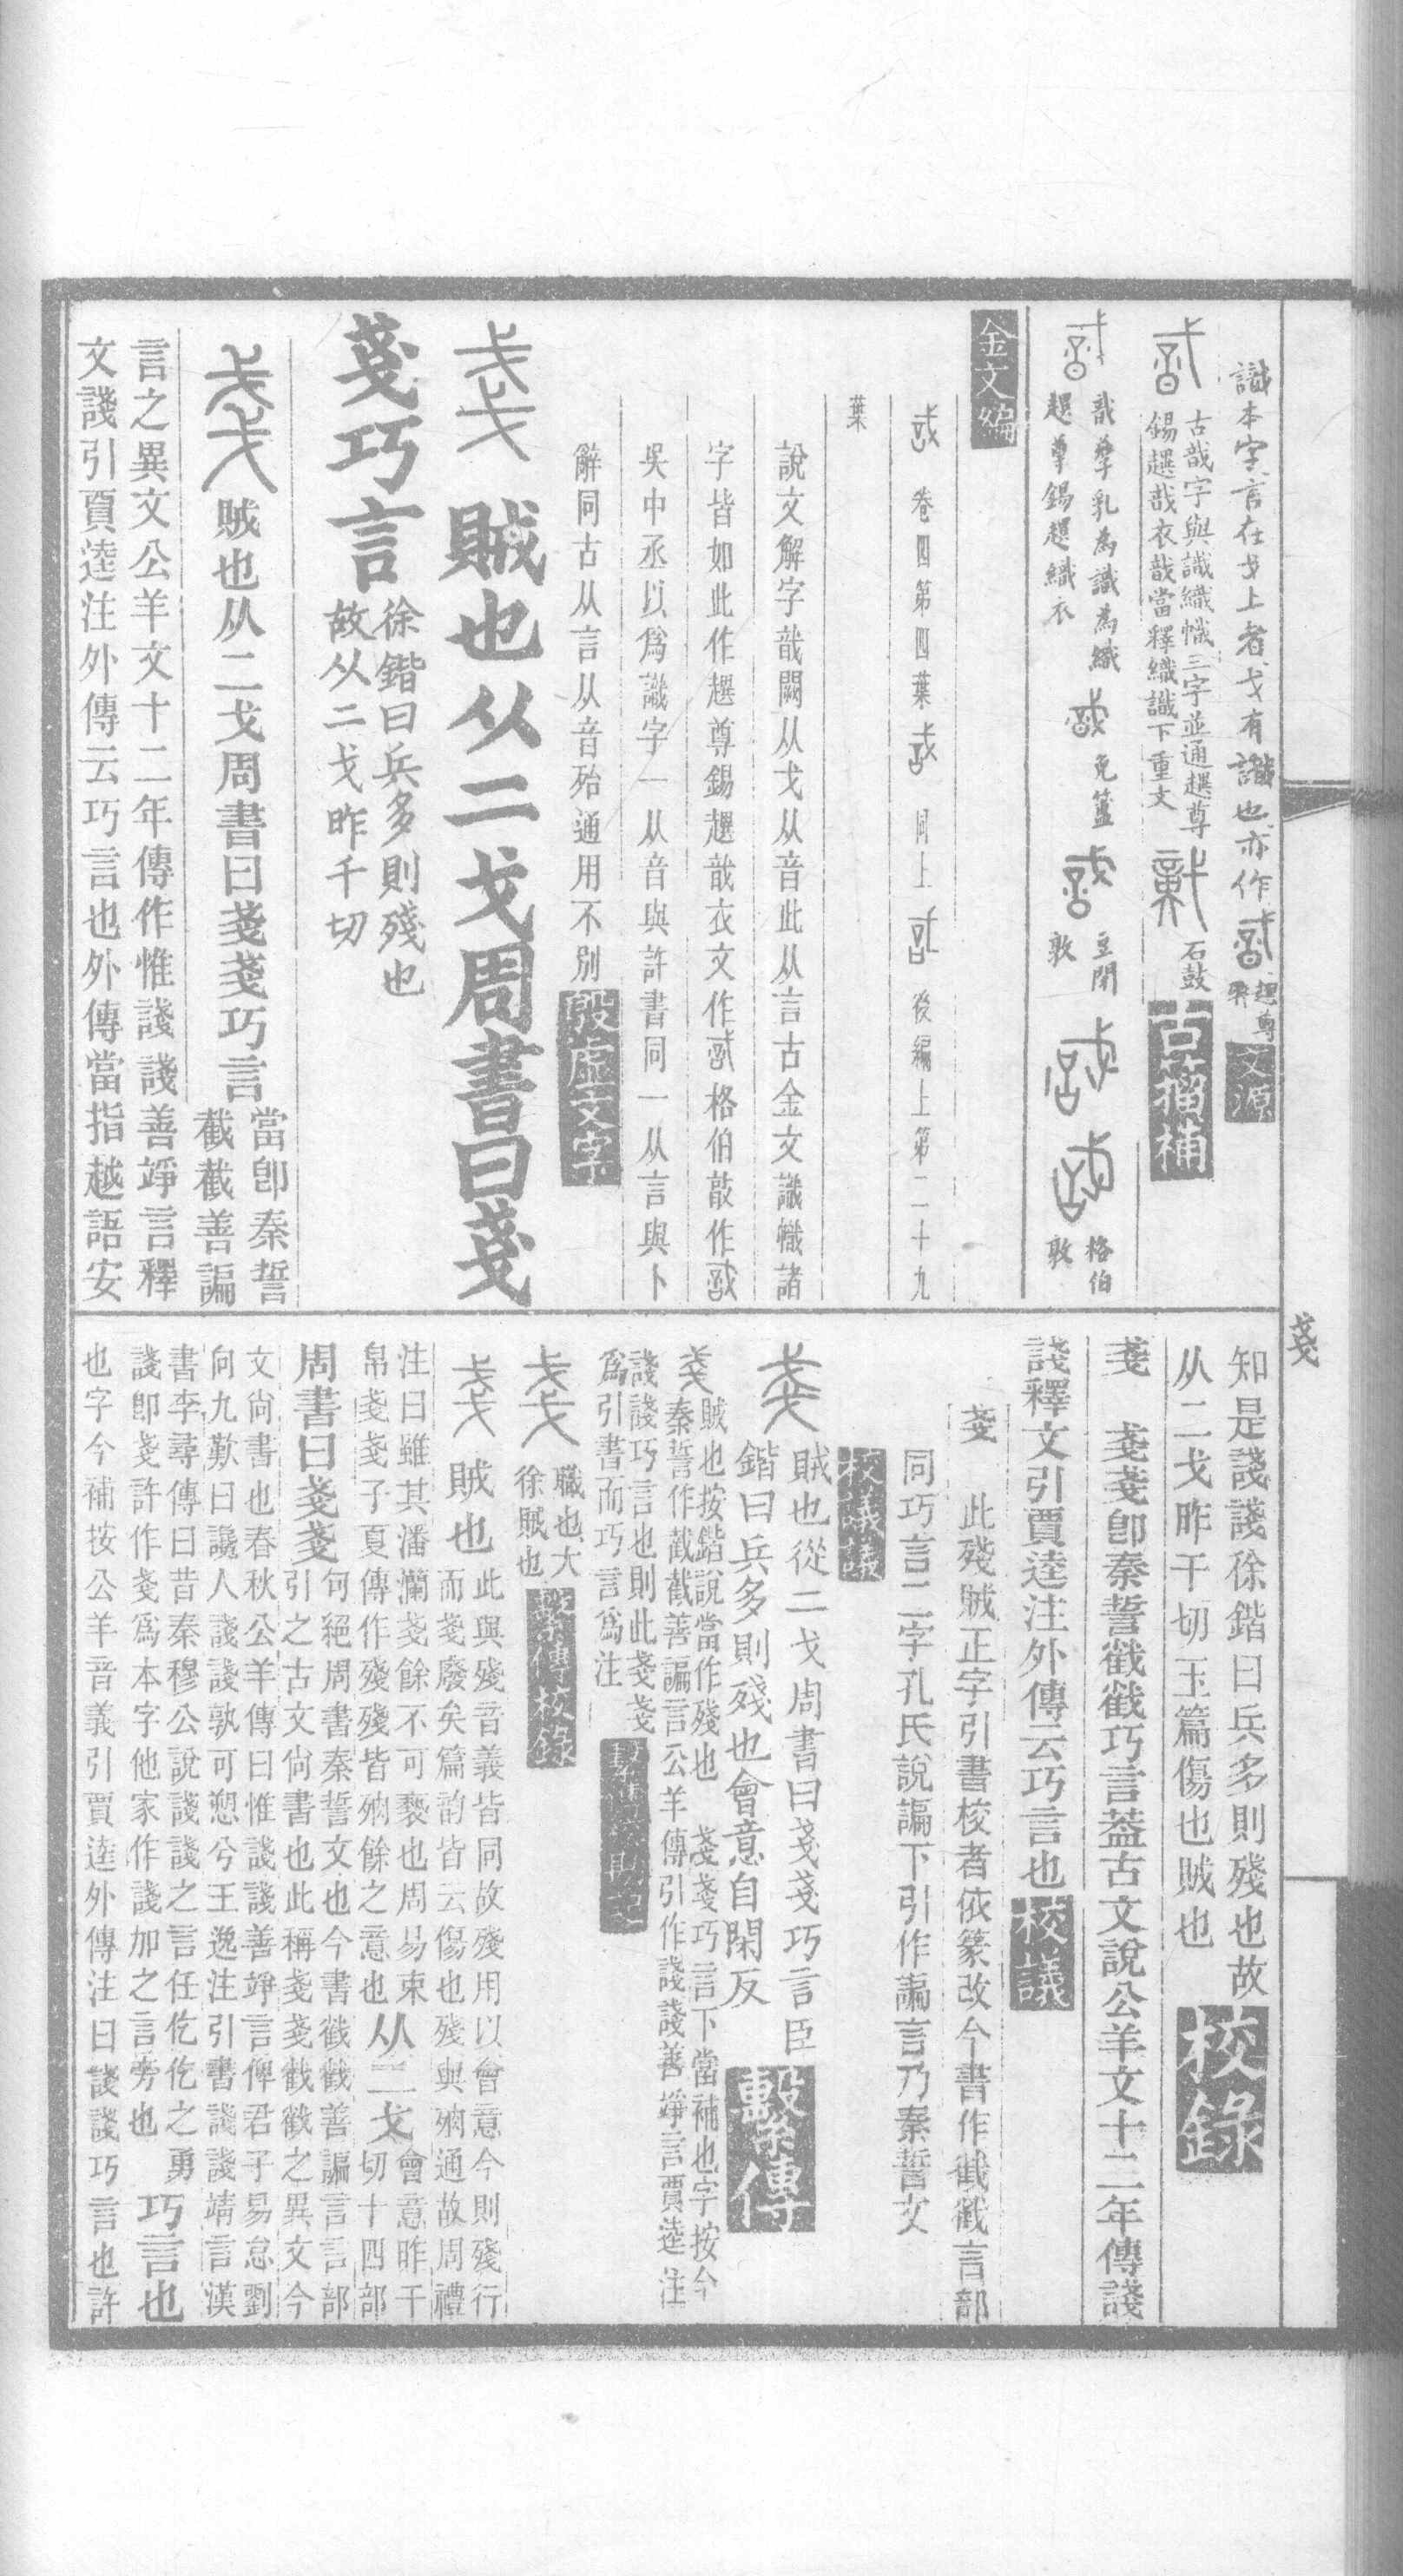 識本字言在戈上者戈有識也亦作 趩尊 文源
古戠字與識織幟三字並通趩尊
錫趩戠衣戠當釋織識下重文 石鼓 古籀補
戠孳乳為識為織 免簠 豆閉敦 格伯敦
趩尊錫趩織衣
金文編
卷四第四葉 同上 後編上第二十九
葉
說文解字戠闕从戈从音此从言古金文識幟諸
字皆如此作趩尊錫趩戠衣文作 格伯敦作
吳中丞以爲識字一从音與許書同一从言與卜
辭同古从言从音殆通用不別 殷虛文字
賊也从二戈周書曰戔
戔巧言 徐鍇曰兵多則殘也
故从二戈昨千切
賊也从二戈周書曰戔戔巧言 當卽秦誓
截截善諞
言之異文公羊文十二年傳作惟諓諓善竫言釋
文諓引賈逵注外傳云巧言也外傳當指越語安
戔
知是諓諓徐鍇曰兵多則殘也故
从二戈昨干切玉篇傷也賊也 校錄
戔 戔戔卽秦誓截截巧言蓋古文說公羊文十二年傳諓
諓釋文引賈逵注外傳云巧言也 校議
戔 此殘賊正字引書校者依篆改今書作截截言部
同巧言二字孔氏說諞下引作諞言乃秦誓文
校議議
賊也從二戈周書曰戔戔巧言臣
鍇曰兵多則殘也會意自閑反 繫傳
戔 賊也按鍇說當作殘也 戔戔巧言下當補也字按今
秦誓作截截善諞言公羊傳引作諓諓善竫言賈逵注
諓諓巧言也則此戔戔
爲引書而巧言爲注
職也大
徐賊也 繫傳校錄
賊也 此與殘音義皆同故殘用以會意今則殘行
而戔廢矣篇韵皆云傷也殘與殀通故周禮
注曰雖其潘瀾戔餘不可褻也周易束
帛戔戔子夏傳作殘殘皆殀餘之意也 从二戈 會意昨千
切十四部
周書曰戔戔 句絕周書秦誓文也今書截截善諞言言部
引之古文尙書也此稱戔戔截截之異文今
文尙書也春秋公羊傳曰惟諓諓善竫言俾君子易怠劉
向九歎曰讒人諓諓孰可愬兮王逸注引書諓諓靖言漢
書李尋傳曰昔秦穆公說諓諓之言任仡仡之勇
諓卽戔許作戔爲本字他家作諓加之言旁也 巧言也
也字今補按公羊音義引賈逵外傳注曰諓諓巧言也許